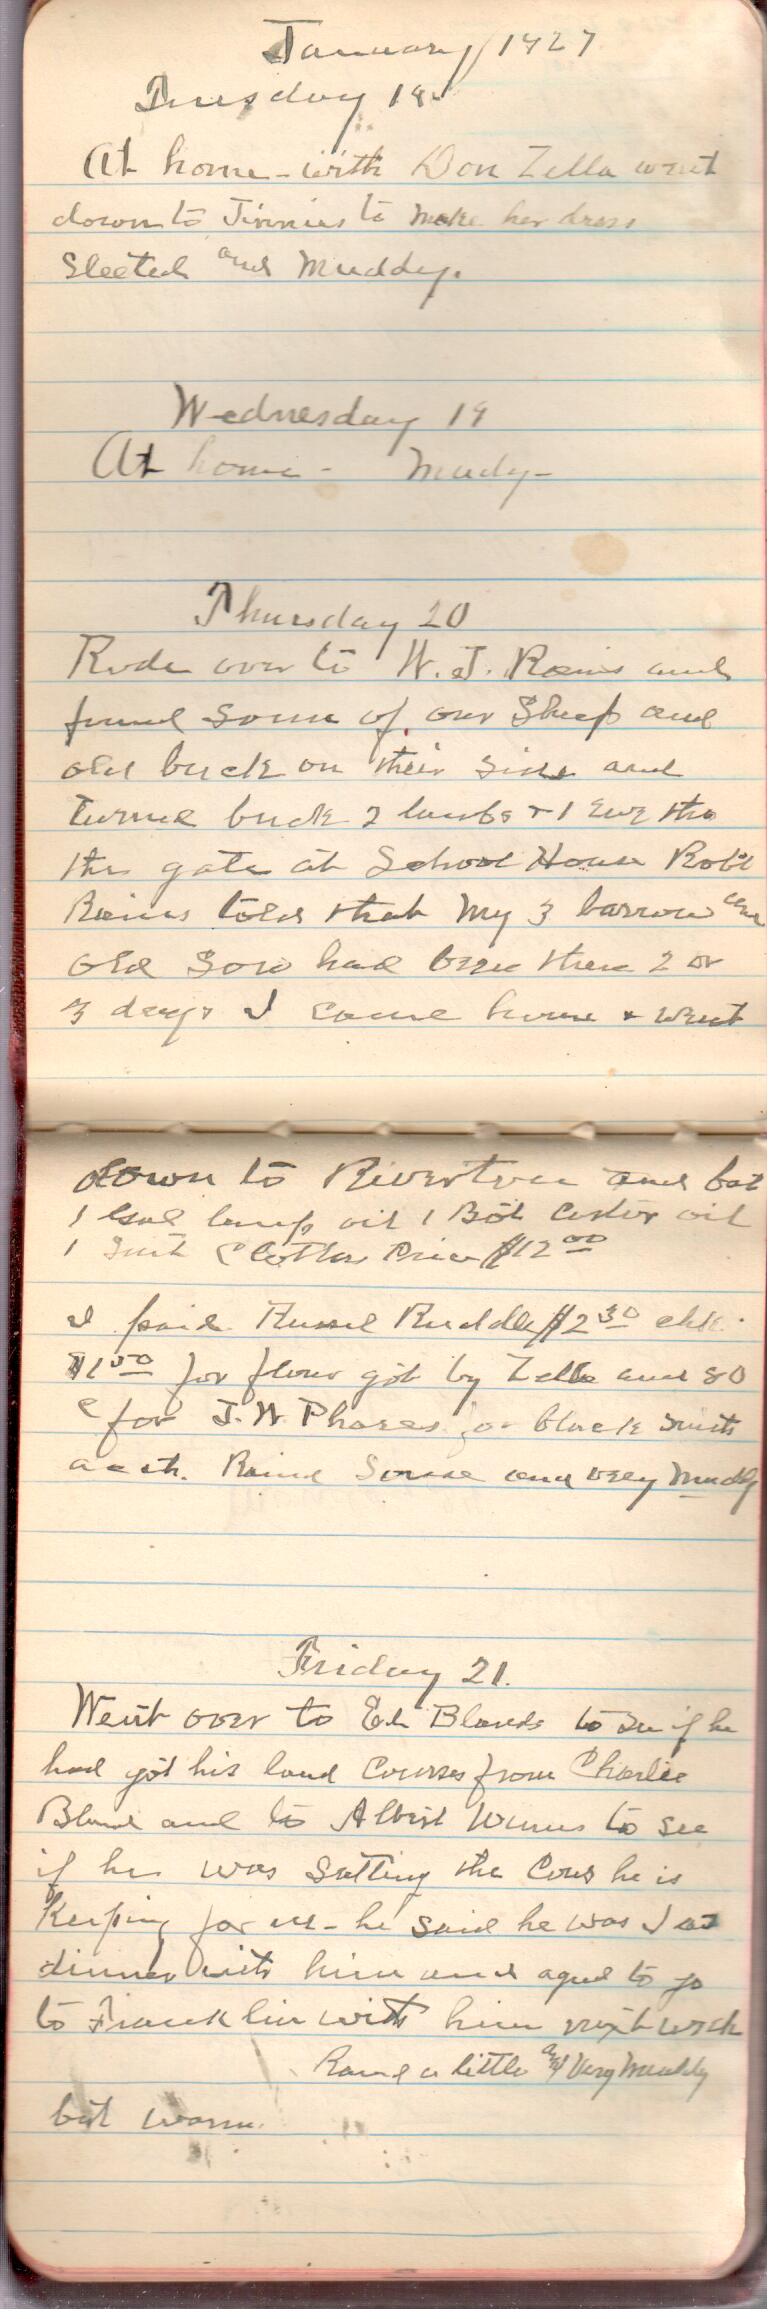 January 1927
Tuesday 18
At home - with Don Zella went
down to Jinnies to make her dress
Sleeted and Muddy.
Wednesday 19
At home - Mudy -
Thursday 20
Rode over to W. J. Rains and
found some of our Sheep and
old buck on their side and
turned buck 2 lambs + 1 Ewe thro
the gate at School House Robt
Rains told that my 3 barrow and
old Sow had been there 2 or
3 days I came home + went
down to Riverton and bot
1 Gal lamp oil 1 Bot Castor oil
1 Suit Clothes Price $12 00
I paid Russel Ruddle $2 30 chk.
$1 50 for flour got by Zella and 80
c for J. W. Phares for black smith
acct. Raind Some and very Muddy
Friday 21.
Went over to Ed Blands to see if he
had got his land Courses from Charlie
Bland and to Albert to see
if he was Salting the Cows he is
Keeping for us - he said he was I eat
dinner with him and agred to go
to Franklin with him next week
Raind a little and Very Muddy
but warm.